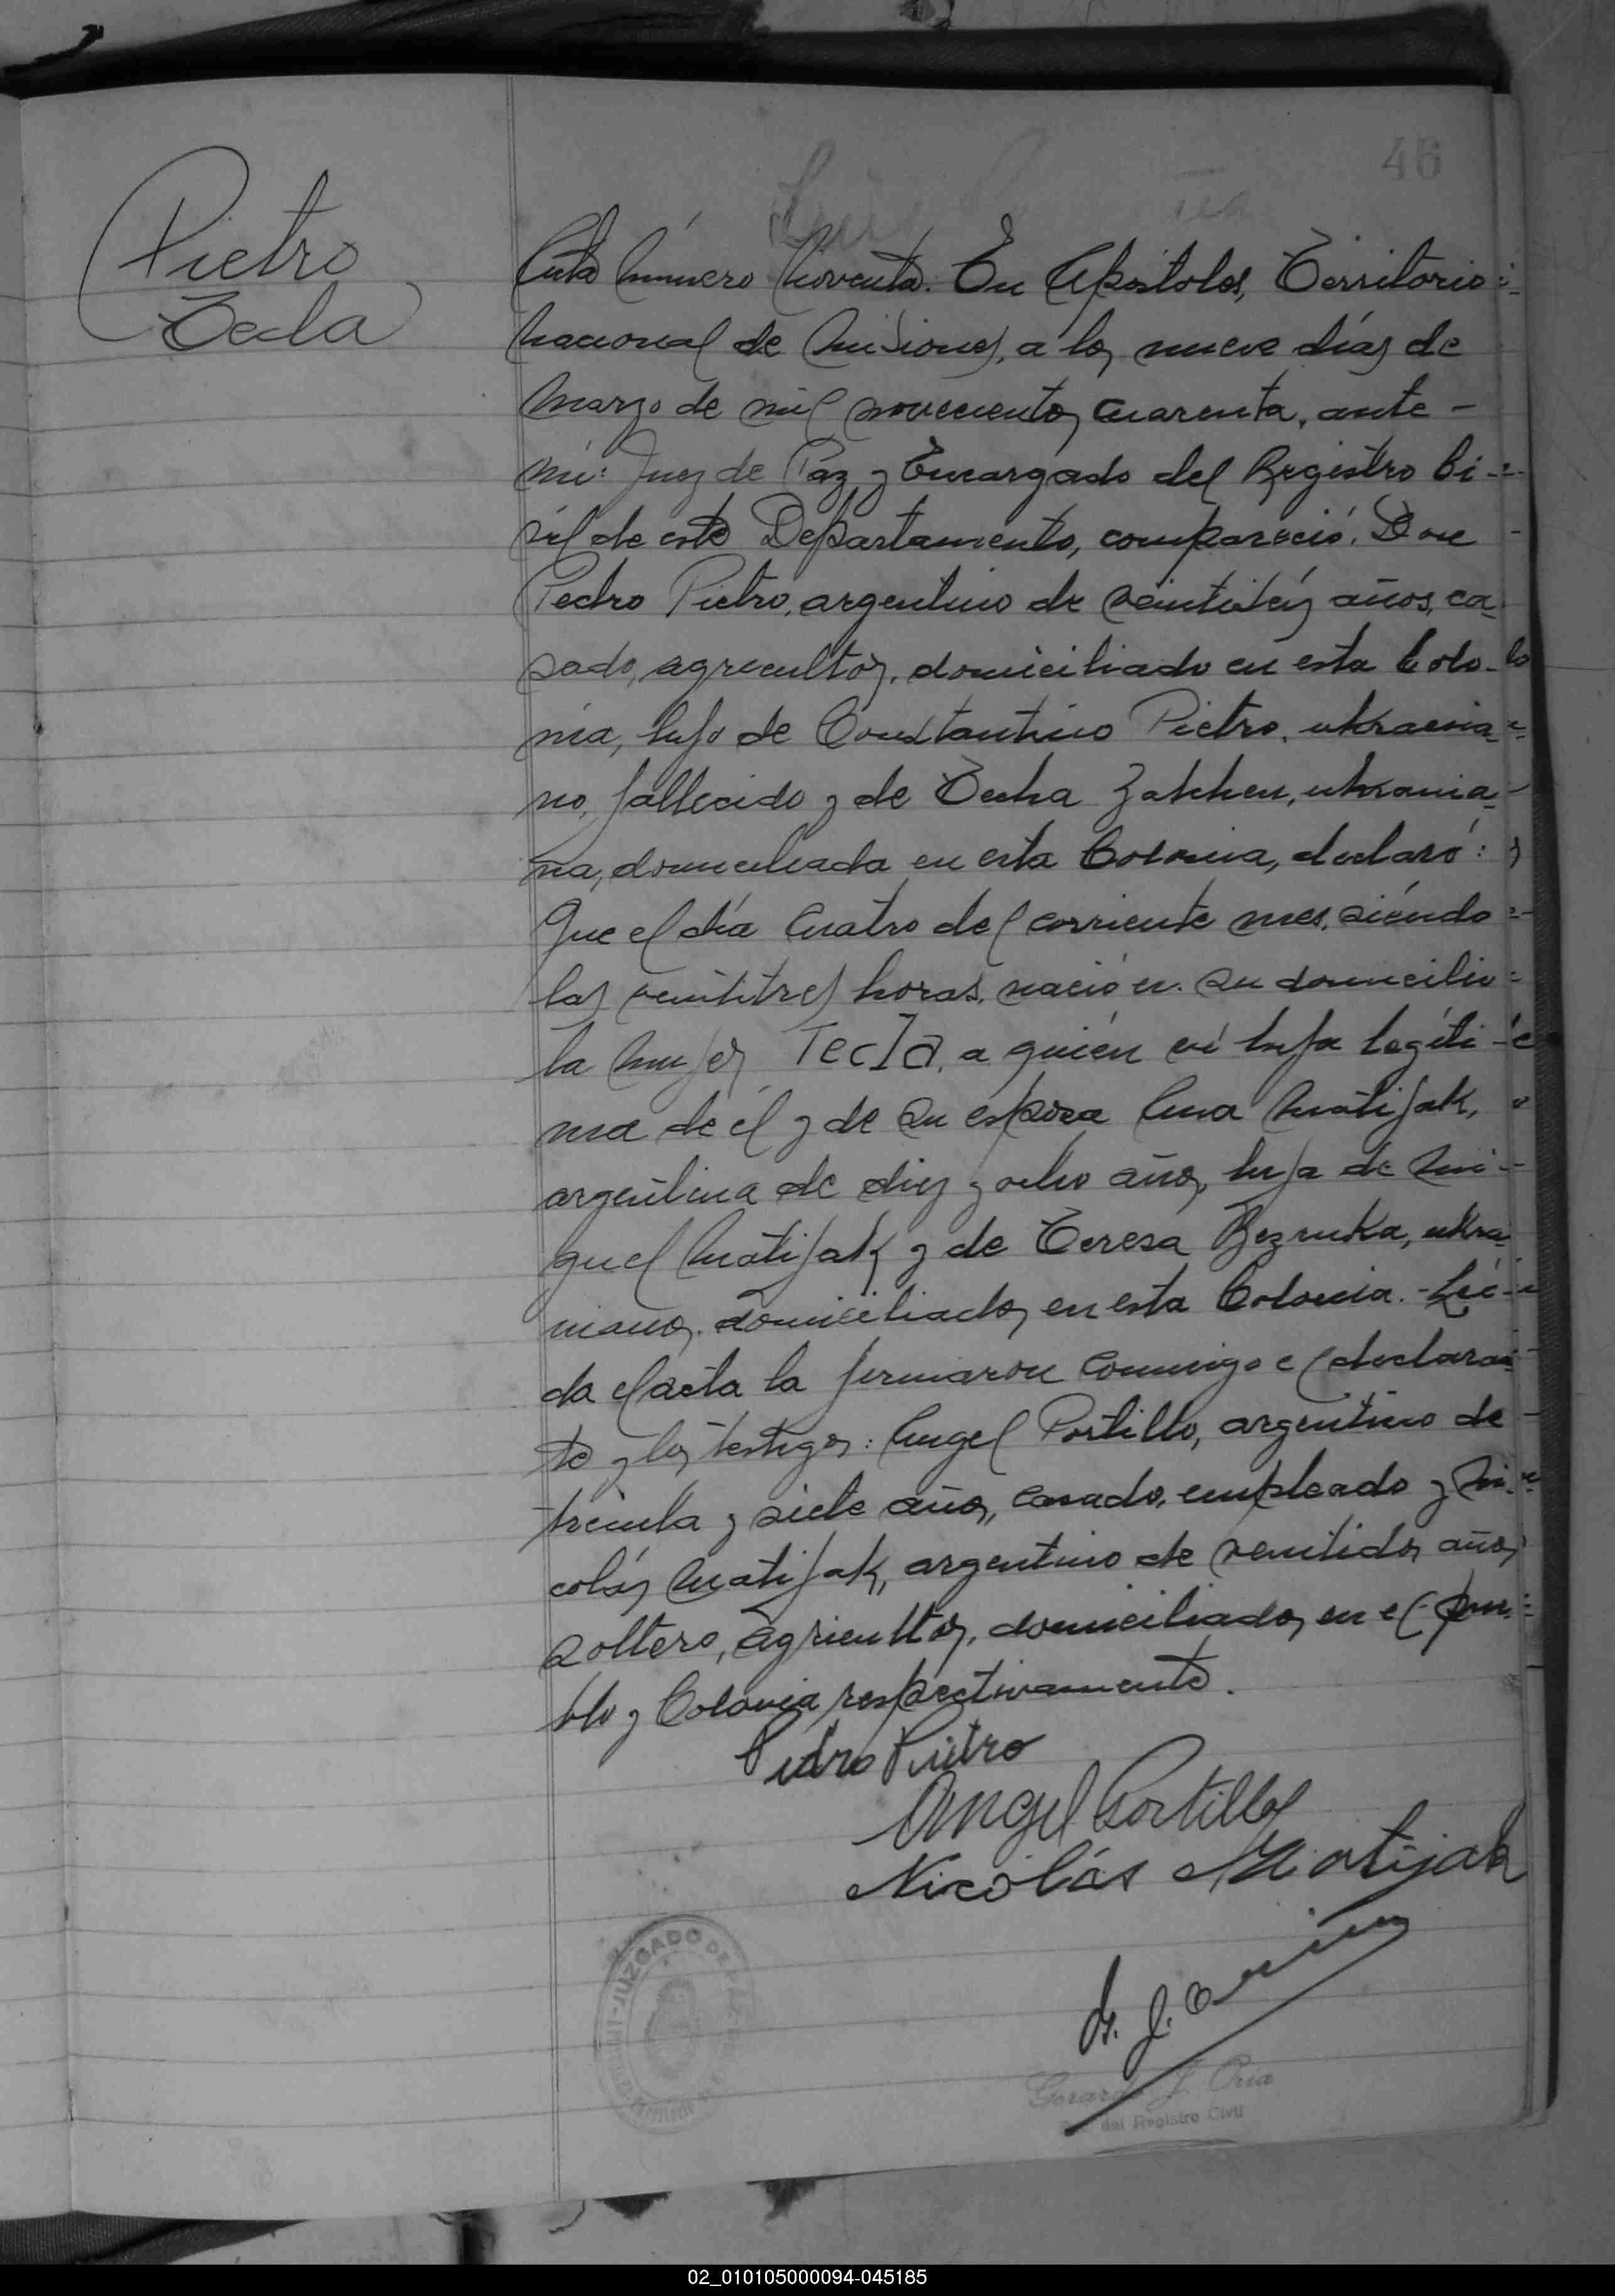 46
Pietro
Tecla
Acta Número Noventa. En Apóstoles, Territorio
Nacional de Misiones, a los nueve días de
Marzo de mil novecientos cuarenta, ante
mi: Juez de Paz y Encargado del Registro Ci-
vil de este Departamento, compareció: Don
Pedro Pietro, argentino de veintiséis años, ca-
sado, agricultor, domiciliado en esta Colo-
nia, hijo de Constantino Pietro, ukrania-
no, fallecido y de Zakchen, ukrania-
na, domiciliada en esta Colonia, declaró:
Que el día Cuatro del corriente mes, siéndo
las veintitres horas, nació en su domicilio
la mujer Tecla, a quién vi hija legíti-
ma de él y de su esposa Ana Matijak,
argentina de diez y ocho años, hija de Mi-
guel Matijak y de Teresa Bezruka, ukra-
nianos, domiciliados en esta Colonia. - Leí-
da el acta la firmaron conmigo el declaran-
te y los testigos: Angel Portillo, argentino de
treinta y siete años, casado, empleado y Ni-
colás Matijak, argentino de veintidos años
soltero, agricultor, domiciliados en el pue-
blo y Colonia respectivamente.
Pedro Pietro
Angel Portillo
Nicolás Matijak
JUZGADO DE PAZ
Gerardo J. Oria
del Registro Civil
02_010105000094-045185